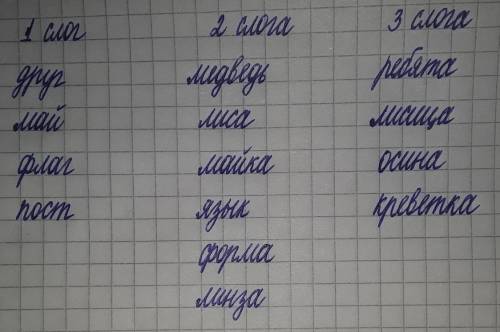 1 слог 2 слога 3 слога
друг медведь ребята
май лиса лисица
флаг майка осина
пост язык креветка
форма
линза